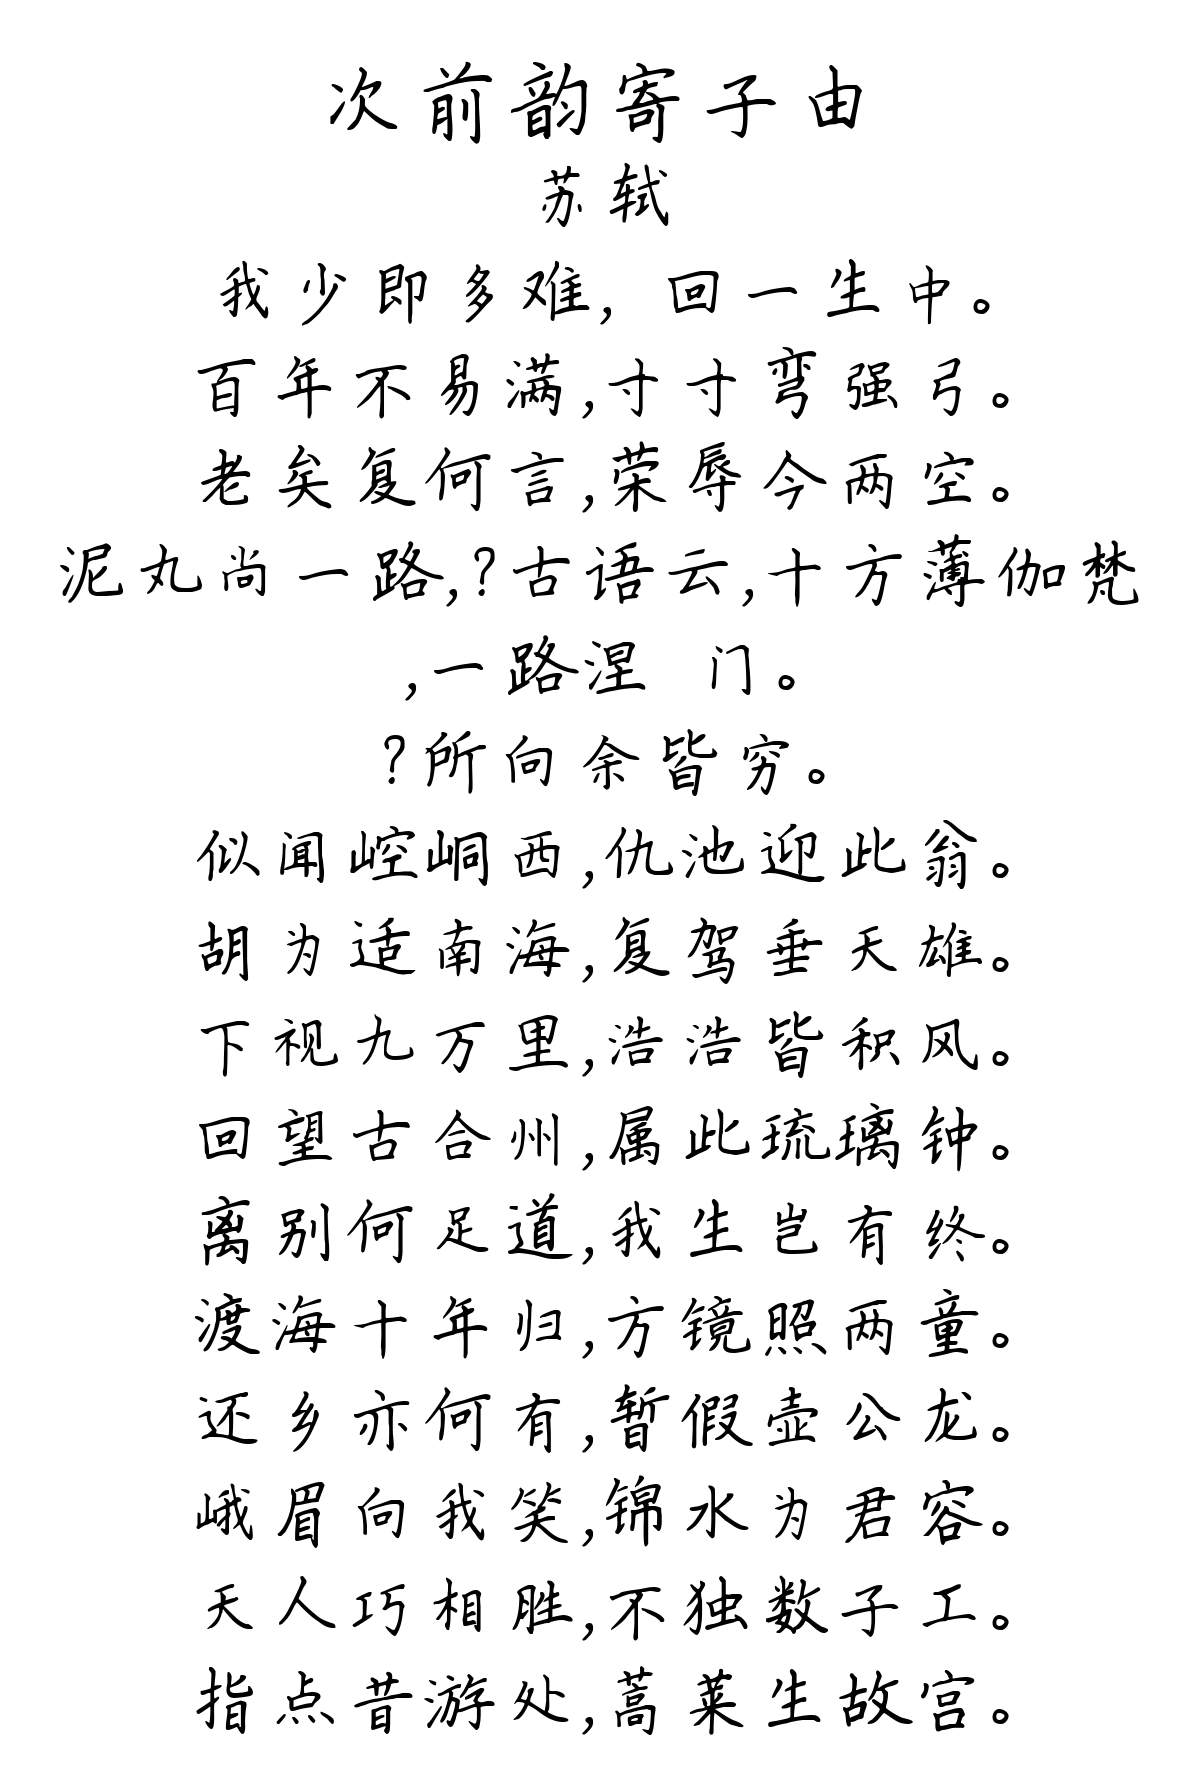 次前韵寄子由
苏轼
我少即多难, 回一生中。
百年不易满,寸寸弯强弓。
老矣复何言,荣辱今两空。
泥丸尚一路,?古语云,十方薄伽梵
,一路涅 门。
?所向余皆穷。
似闻崆峒西,仇池迎此翁。
胡为适南海,复驾垂天雄。
下视九万里,浩浩皆积风。
回望古合州,属此琉璃钟。
离别何足道,我生岂有终。
渡海十年归,方镜照两童。
还乡亦何有,暂假壶公龙。
峨眉向我笑,锦水为君容。
天人巧相胜,不独数子工。
指点昔游处,蒿莱生故宫。